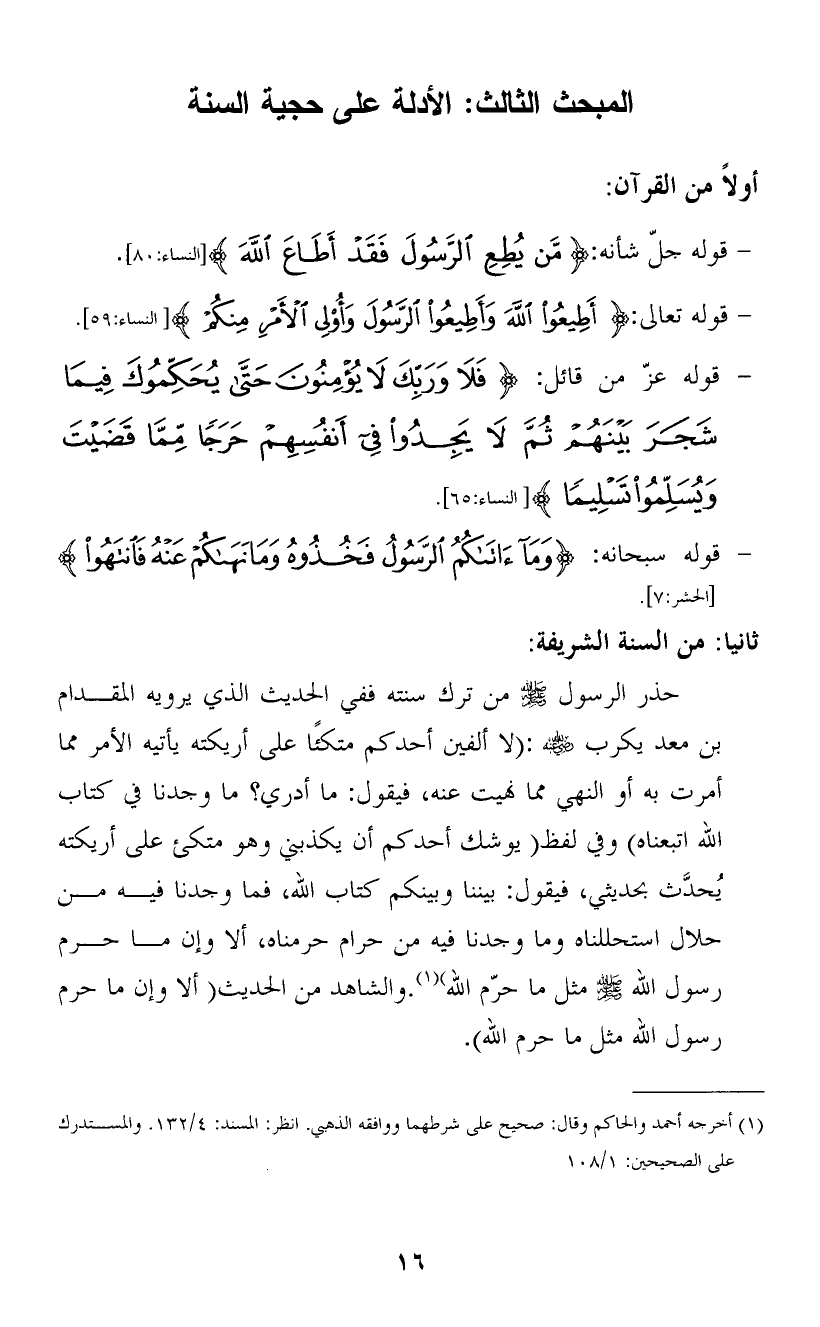 المبحث الثالث: الأدلة على حجية السنة
أولاً من القرآن:
– قوله جلّ شأنه:﴿ مَّن يُطِعِ ٱلرَّسُولَ فَقَدْ أَطَاعَ ٱللَّهَ ﴾[النساء:٨٠].
– قوله تعالى:﴿ أَطِيعُوا۟ ٱللَّهَ وَأَطِيعُوا۟ ٱلرَّسُولَ وَأُو۟لِى ٱلْأَمْرِ مِنكُمْ ﴾[ النساء:٥٩].
– قوله عزّ من قائل: ﴿ فَلَا وَرَبِّكَ لَا يُؤْمِنُونَ حَتَّىٰ يُحَكِّمُوكَ فِيمَا
شَجَرَ بَيْنَهُمْ ثُمَّ لَا يَجِدُوا۟ فِىٓ أَنفُسِهِمْ حَرَجًا مِّمَّا قَضَيْتَ
وَيُسَلِّمُوا۟ تَسْلِيمًا ﴾[ النساء:٦٥].
– قوله سبحانه: ﴿وَمَآ ءَاتَىٰكُمُ ٱلرَّسُولُ فَخُذُوهُ وَمَا نَهَىٰكُمْ عَنْهُ فَٱنتَهُوا۟ ﴾
[الحشر:٧].
ثانيا: من السنة الشريفة:
حذر الرسول ﷺ من ترك سنته ففي الحديث الذي يرويه المقـــدام
بن معد يكرب رضي الله عنه :(لا ألفين أحدكم متكئًا على أريكته يأتيه الأمر مما
أمرت به أو النهي مما نهيت عنه، فيقول: ما أدري؟ ما وجدنا في كتاب
الله اتبعناه) وفي لفظ( يوشك أحدكم أن يكذبني وهو متكئ على أريكته
يُحدَّث بحديثي، فيقول: بيننا وبينكم كتاب الله، فما وجدنا فيـــه مـــن
حلال استحللناه وما وجدنا فيه من حرام حرمناه، ألا وإن مـــا حـــرم
رسول الله ﷺ مثل ما حرّم الله)(١).والشاهد من الحديث( ألا وإن ما حرم
رسول الله مثل ما حرم الله).
(١) أخرجه أحمد والحاكم وقال: صحيح على شرطهما ووافقه الذهبي. انظر: المسند: ١٣٢/٤. والمســـتدرك
على الصحيحين: ١٠٨/١
١٦